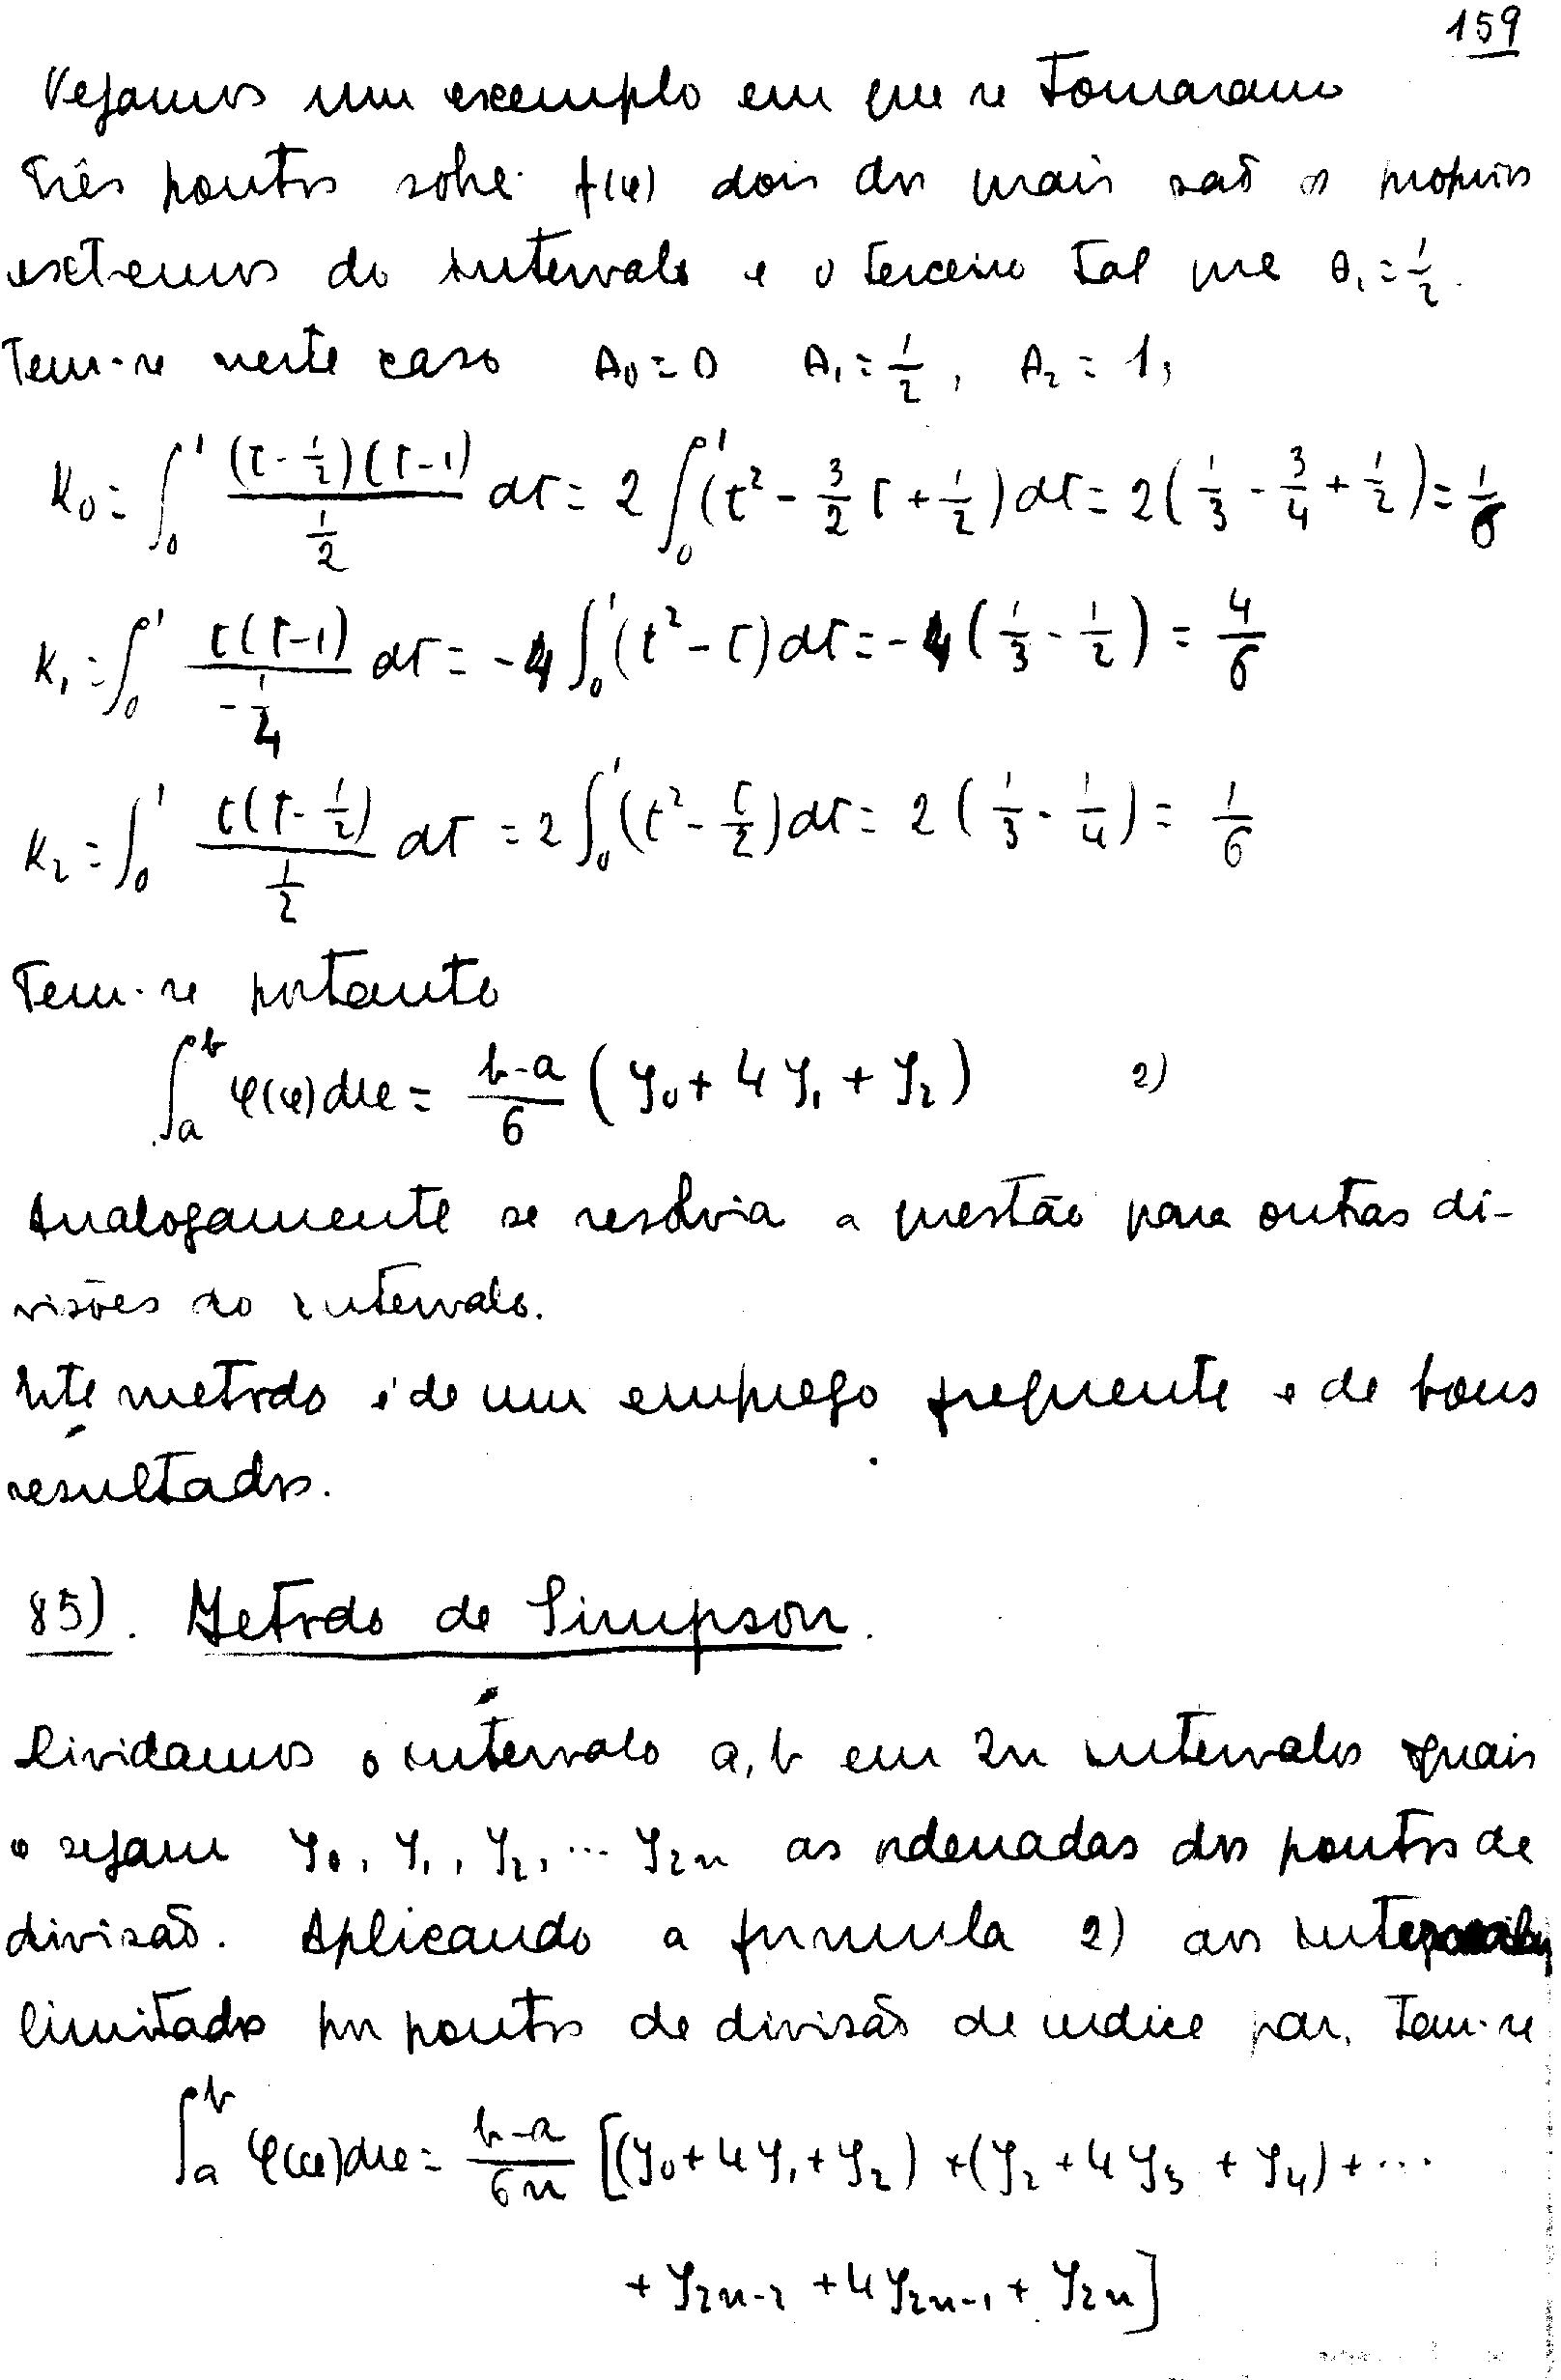 159
Vejamos um exemplo em que se tomaram
três pontos sobre f(x) dois dos quais são os proprios
extremos do intervalo e o terceiro tal que θ₁ = 1/2.
Tem-se neste caso θ₀ = 0 θ₁ = 1/2, θ₂ = 1,
K₀ = ∫₀¹ (t - 1/2)(t-1) / (1/2) dt = 2 ∫₀¹ (t² - 3/2 t + 1/2) dt = 2 (1/3 - 3/4 + 1/2) = 1/6
K₁ = ∫₀¹ t(t-1) / (-1/4) dt = -4 ∫₀¹ (t² - t) dt = -4 (1/3 - 1/2) = 4/6
K₂ = ∫₀¹ t(t - 1/2) / (1/2) dt = 2 ∫₀¹ (t² - t/2) dt = 2 (1/3 - 1/4) = 1/6
Tem-se portanto
∫ₐᵇ φ(x) dx = (b-a)/6 (y₀ + 4 y₁ + y₂) 2)
Analogamente se resolvia a questão para outras di-
visões do intervalo.
Este metodo é de um emprego frequente e de bons
resultados.
85). Metodo de Simpson.
Dividamos o intervalo a, b em 2n intervalos iguais
e sejam y₀, y₁, y₂, ... y₂ₙ as ordenadas dos pontos de
divisão. Aplicando a formula 2) aos intervalos
limitados por pontos de divisão de indice par, tem-se
∫ₐᵇ φ(x) dx = (b-a)/6n [(y₀ + 4 y₁ + y₂) + (y₂ + 4 y₃ + y₄) + ...
+ y₂ₙ₋₂ + 4 y₂ₙ₋₁ + y₂ₙ]